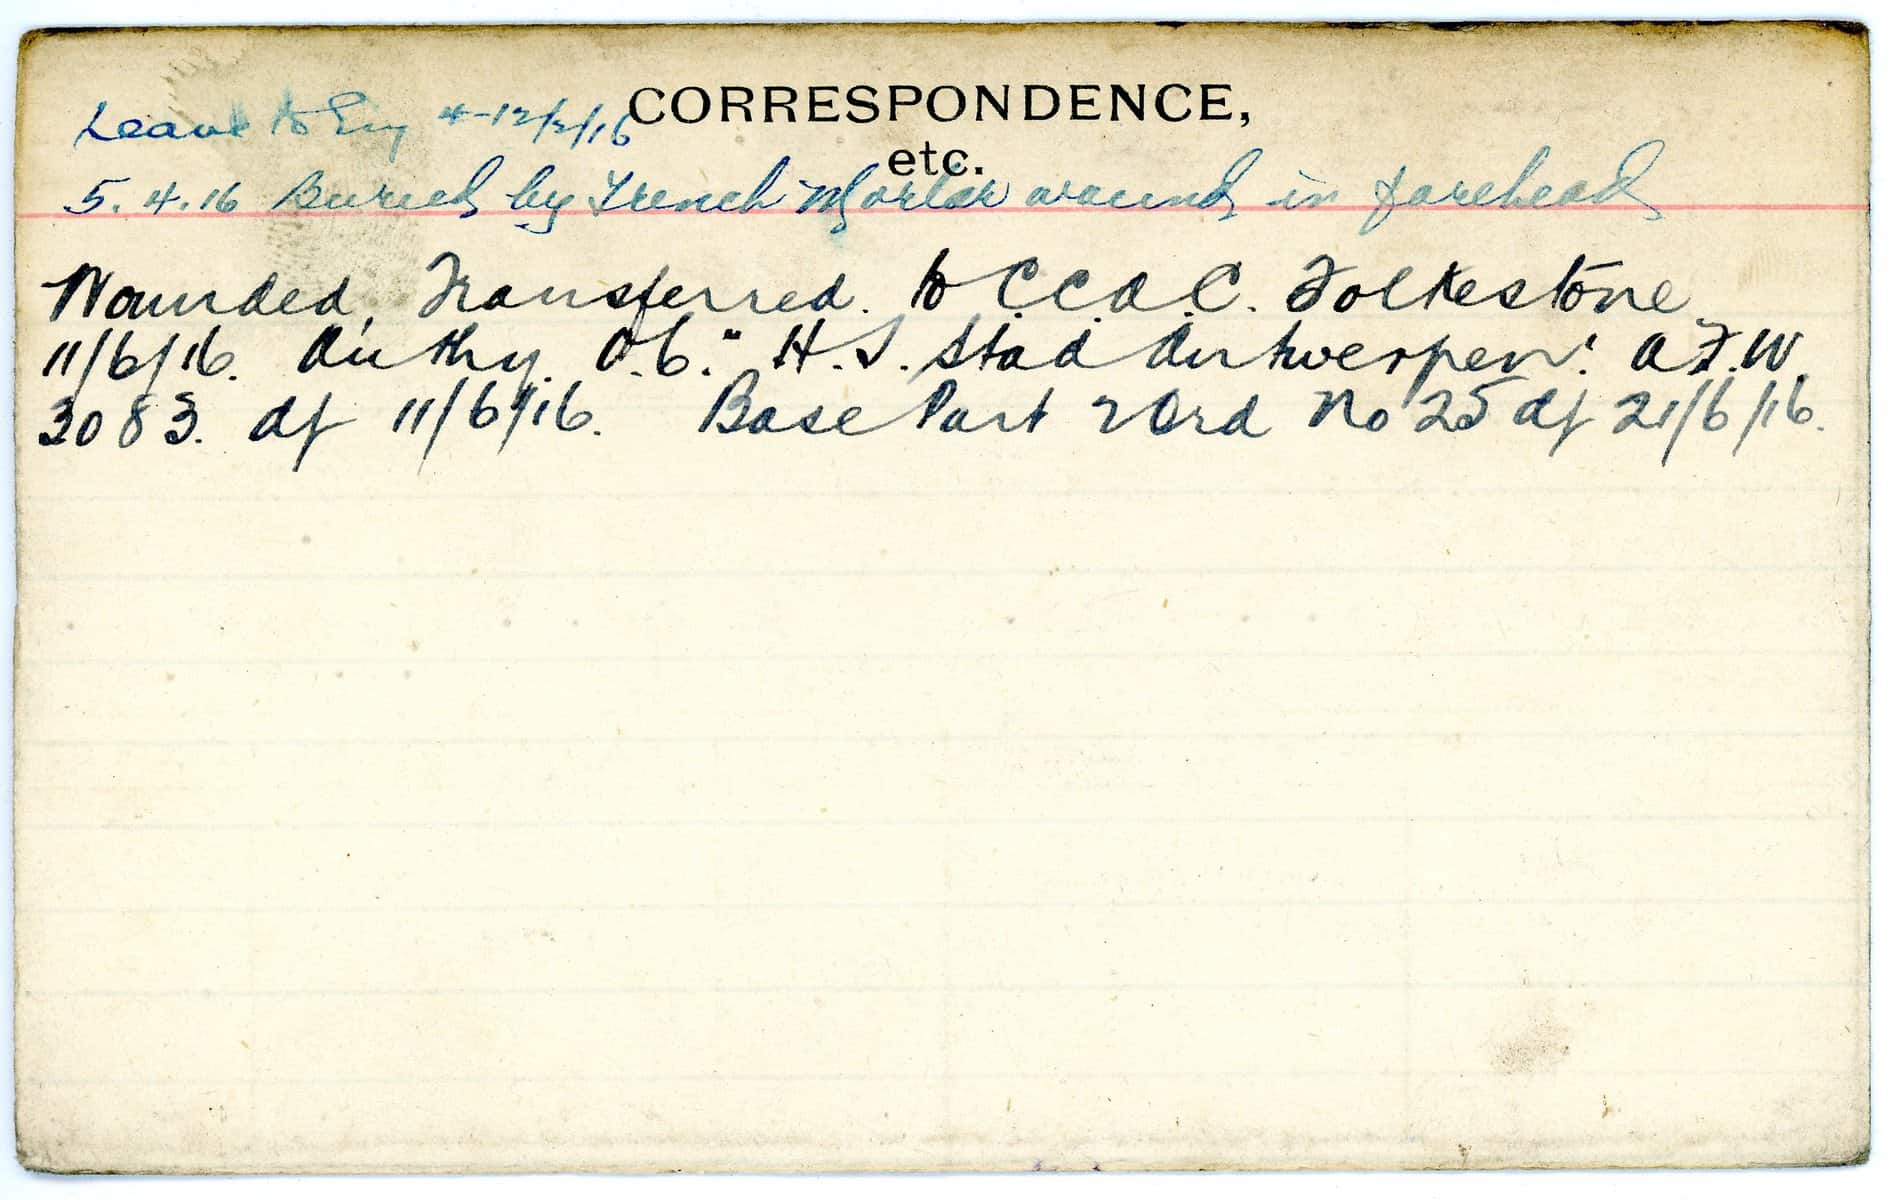 CORRESPONDENCE,
etc.
Leave to Eng 4-12/2/16
5.4.16 Buried by Trench Mortar wound in forehead
Wounded, Transferred. to C.C.A.C. Folkestone
11/6/16. Authy. O.C. "H.S. Stad Antwerpen" A.F.W.
3083. df 11/6/16. Base Part 2 Ord No 25 df 21/6/16.